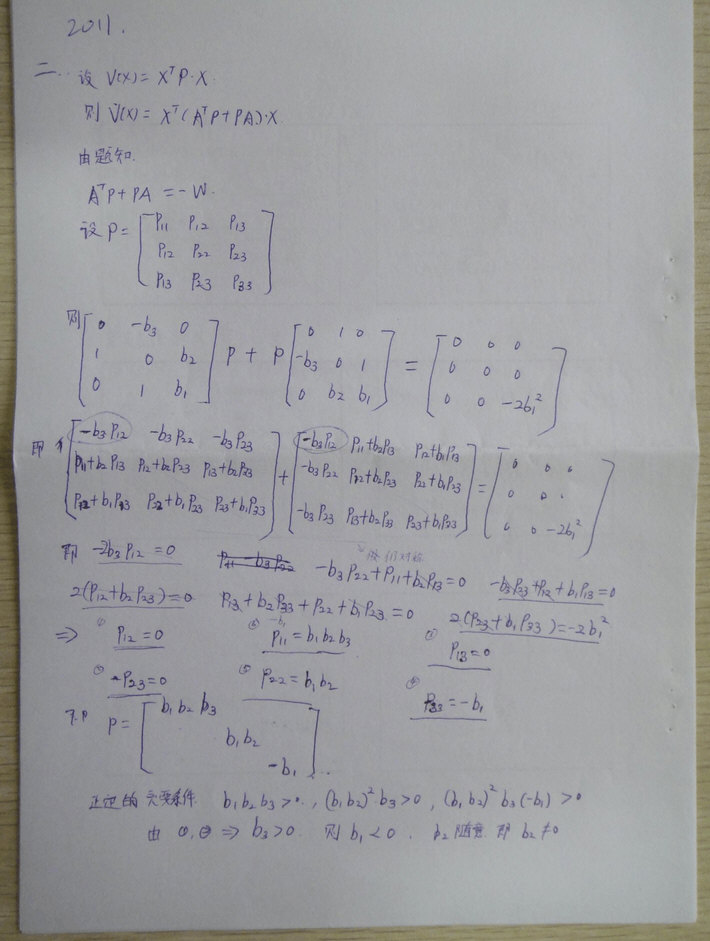 2011.
二. 设 V(X) = X^T P · X
则 V̇(X) = X^T (A^T P + PA) · X.
由题知.
A^T P + PA = -W.
设 P = [ P11 P12 P13
P12 P22 P23
P13 P23 P33 ]
则 [ 0 -b3 0
1 0 b2
0 1 b1 ] P + P [ 0 1 0
-b3 0 1
0 b2 b1 ] = [ 0 0 0
0 0 0
0 0 -2b1^2 ]
即 [ -b3P12 -b3P22 -b3P23
P11+b2P13 P12+b2P23 P13+b2P33
P12+b1P13 P22+b1P23 P23+b1P33 ] + [ -b3P12 P11+b2P13 P12+b1P13
-b3P22 P12+b2P23 P22+b1P23
-b3P23 P13+b2P33 P23+b1P23 ] = [ 0 0 0
0 0 ·
0 0 -2b1^2 ]
即 -2b3P12 = 0 P11 - b3P22 -b3P22+P11+b2P13=0 -b3P23+P12+b1P13=0
2(P12+b2P23)=0 P13+b2P33+P22+b1P23=0 2(P23+b1P33)=-2b1^2
⇒ P12=0 P11=b1b2b3 P13=0
-P23=0 P22=b1b2 P33=-b1
P = [ b1b2b3
b1b2
-b1 ]
正定的 充要条件 b1b2b3>0, (b1b2)^2·b3>0, (b1b2)^2 b3(-b1)>0
由 ①,② ⇒ b3>0. 则 b1<0. b2 随意 即 b2≠0